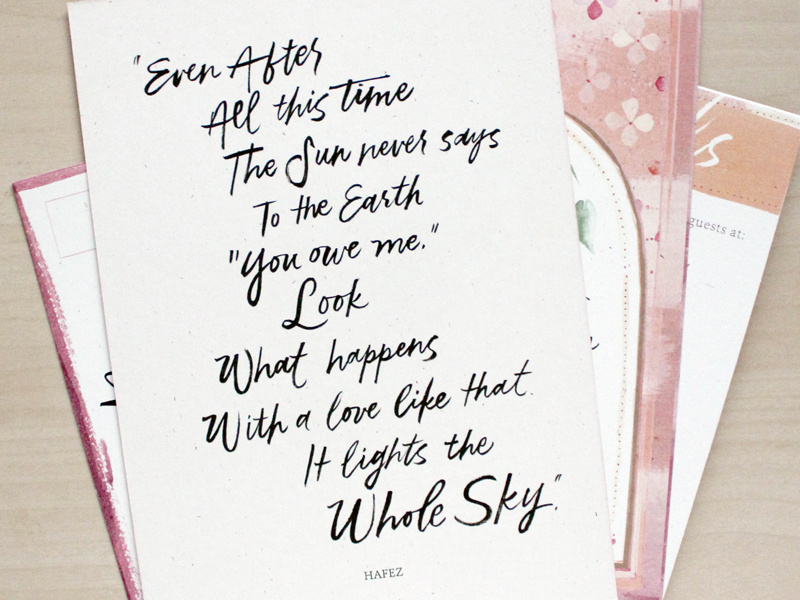 "Even After
All this time
The Sun never says
To the Earth
"You owe me."
Look
What happens
With a love like that.
It lights the
Whole Sky."
HAFEZ
guests at: